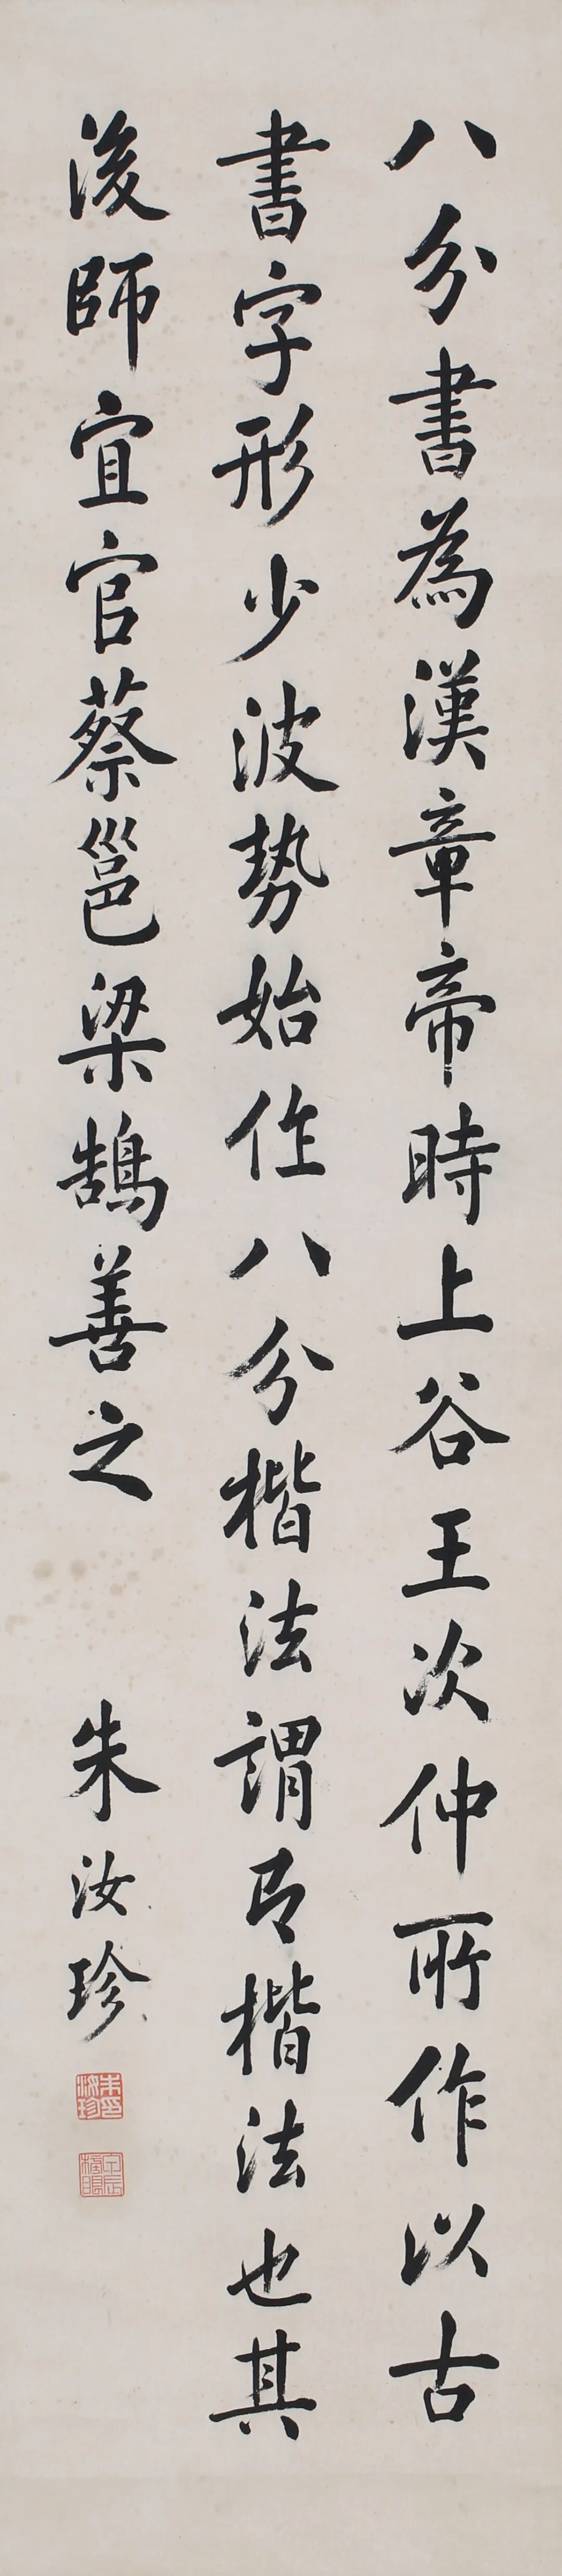 八分書為漢章帝時上谷王次仲所作以古
書字形少波勢始作八分楷法謂有楷法也其
後師宜官蔡邕梁鵠善之
朱汝珍
朱汝珍印
甲辰榜眼